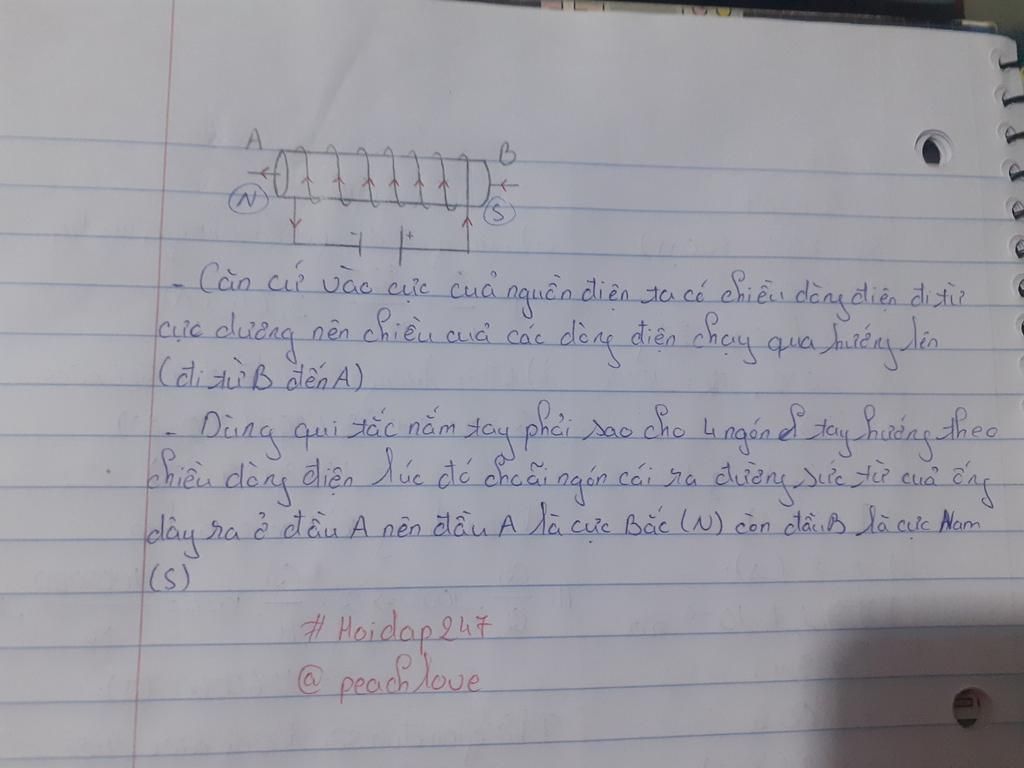 A
B
N
S
- +
- Căn cứ vào cực cuả nguồn điện ta có chiều dòng điện đi từ
cực dương nên chiều cuả các dòng điện chạy qua hướng lên
(đi từ B đến A)
- Dùng qui tắc nắm tay phải sao cho 4 ngón tay hướng theo
chiều dòng điện lúc đó choãi ngón cái ra đường sức từ cuả ống
dây ra ở đầu A nên đầu A là cực Bắc (N) còn đầu B là cực Nam
(S)
# Hoidap247
@ peachlove